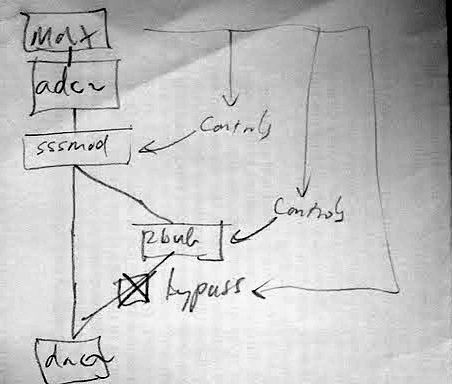 adc~
sssmod
Controls
Controls
bypass
dac~